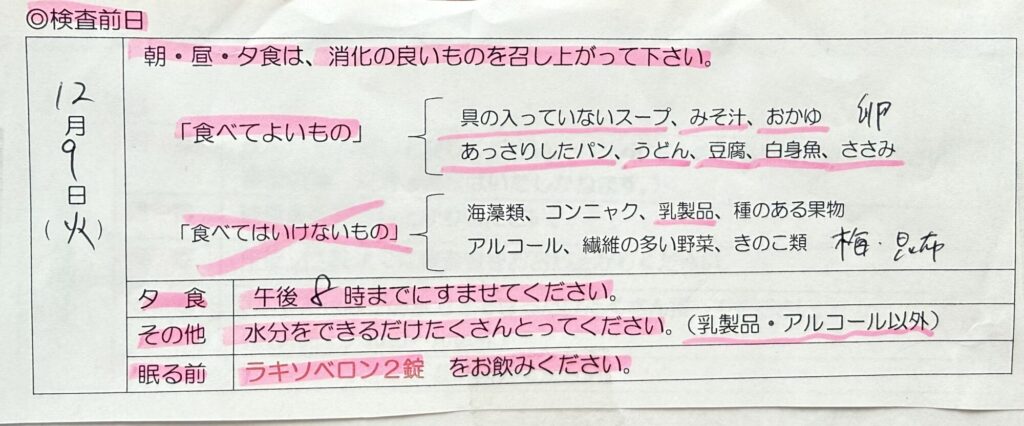 ◎検査前日
12月9日(火)
朝・昼・夕食は、消化の良いものを召し上がって下さい。
「食べてよいもの」
具の入っていないスープ、みそ汁、おかゆ 卵
あっさりしたパン、うどん、豆腐、白身魚、ささみ
「食べてはいけないもの」
海藻類、コンニャク、乳製品、種のある果物
アルコール、繊維の多い野菜、きのこ類 梅・昆布
夕 食 午後 8 時までにすませてください。
その他 水分をできるだけたくさんとってください。(乳製品・アルコール以外)
眠る前 ラキソベロン2錠 をお飲みください。